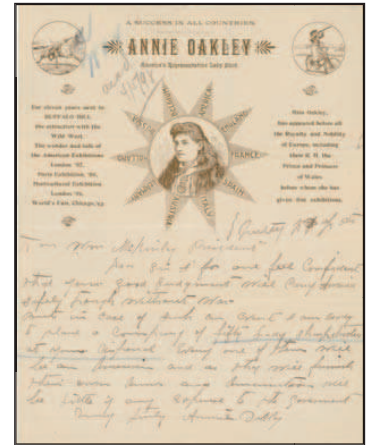 A SUCCESS IN ALL COUNTRIES.
ANNIE OAKLEY
America's Representative Lady Shot.
For eleven years next to
BUFFALO BILL
the attraction with the
Wild West.
The wonder and talk of
the American Exhibitions
London '87.
Paris Exposition, '89.
Horticultural Exhibition
London '92.
World's Fair, Chicago, '93.
Miss Oakley,
has appeared before all
the Royalty and Nobility
of Europe, including
their R. H. the
Prince and Princess
of Wales
before whom she has
given five exhibitions.
ENGLAND
FRANCE
SPAIN
ITALY
Hon Wm McKinley President
Dear Sir I for one feel Confident
that your good judgment will carry America
safely through without war
But in case of such an event I am ready
to place a Company of fifty lady sharpshooters
at your disposal. Every one of them will
be an American and as they will furnish
their own Arms and Ammunition will
be little if any expense to the government
Very truly Annie Oakley